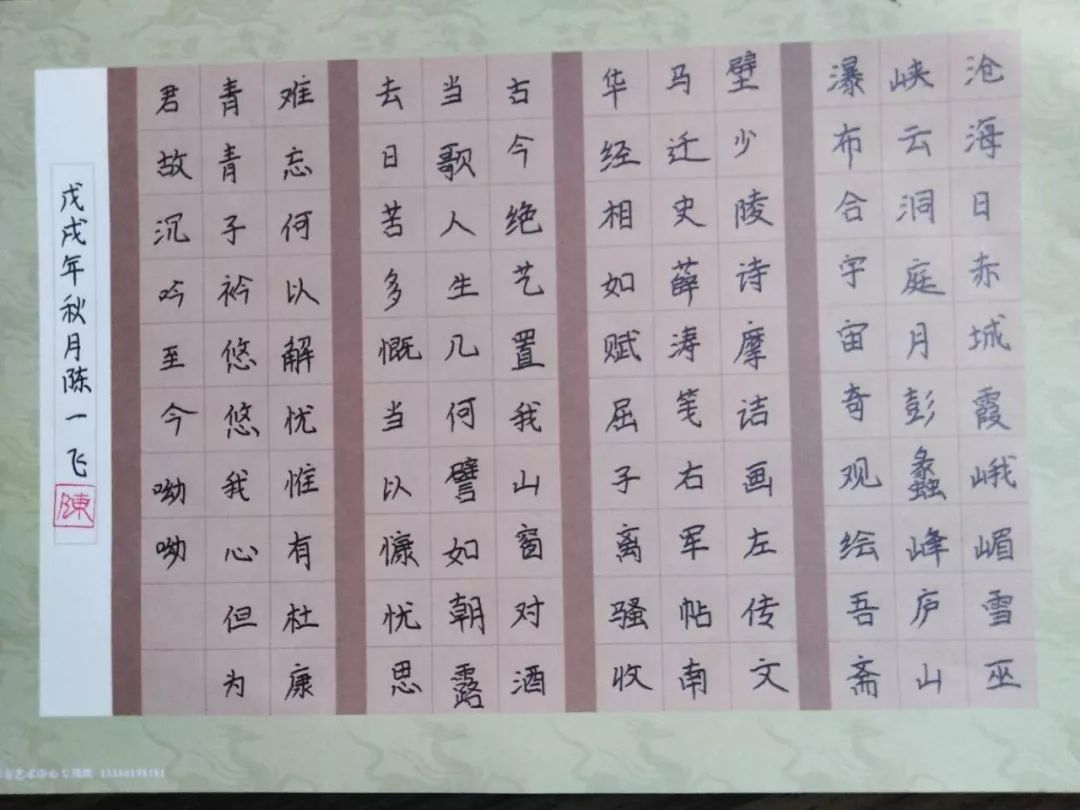 沧海日赤城霞峨嵋雪巫
峡云洞庭月彭蠡峰庐山
瀑布合宇宙奇观绘吾斋
壁少陵诗摩诘画左传文
马迁史薛涛笺右军帖南
华经相如赋屈子离骚收
古今绝艺置我山窗对酒
当歌人生几何譬如朝露
去日苦多慨当以慷忧思
难忘何以解忧惟有杜康
青青子衿悠悠我心但为
君故沉吟至今呦呦
戊戌年秋月陈一飞
陳